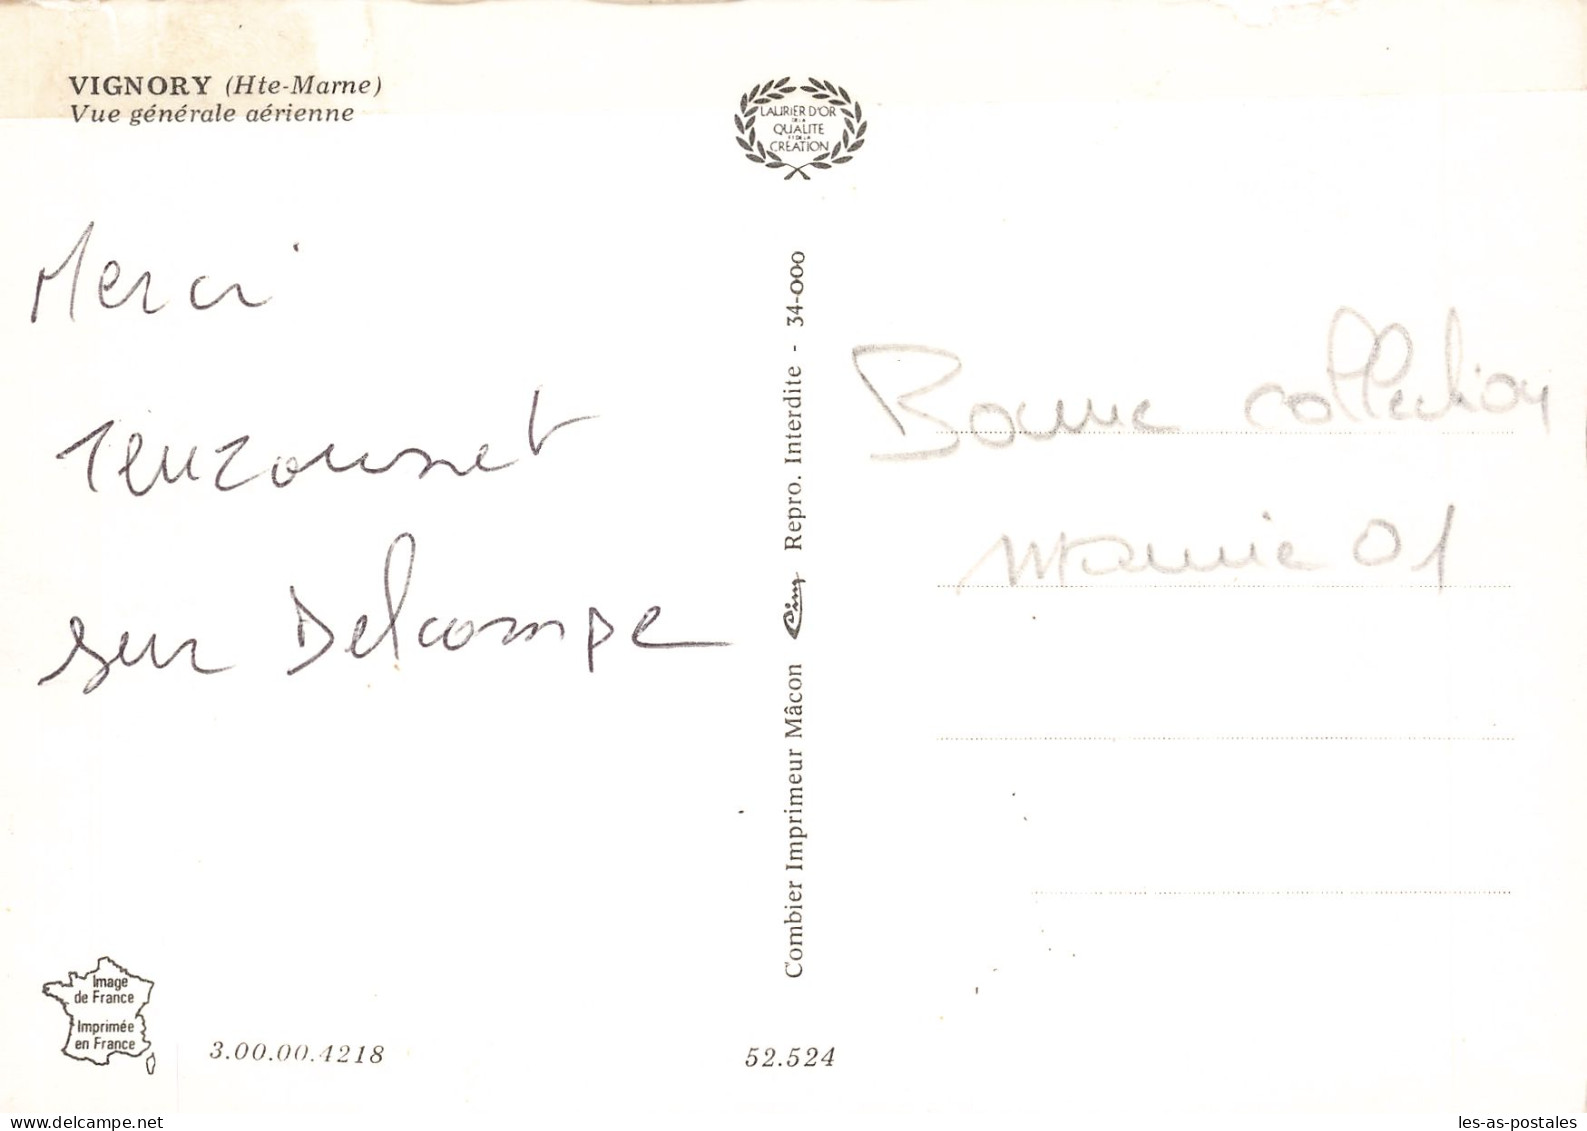 VIGNORY (Hte-Marne)
Vue générale aérienne
LAURIER D'OR
DE LA
QUALITE
ET DE LA
CREATION
Merci
sur Delcampe
Bonne collection
mamie 01
Combier Imprimeur Mâcon Cim Repro. Interdite - 34-000
Image
de France
Imprimée
en France
3.00.00.4218
52.524
delcampe.net
les-as-postales